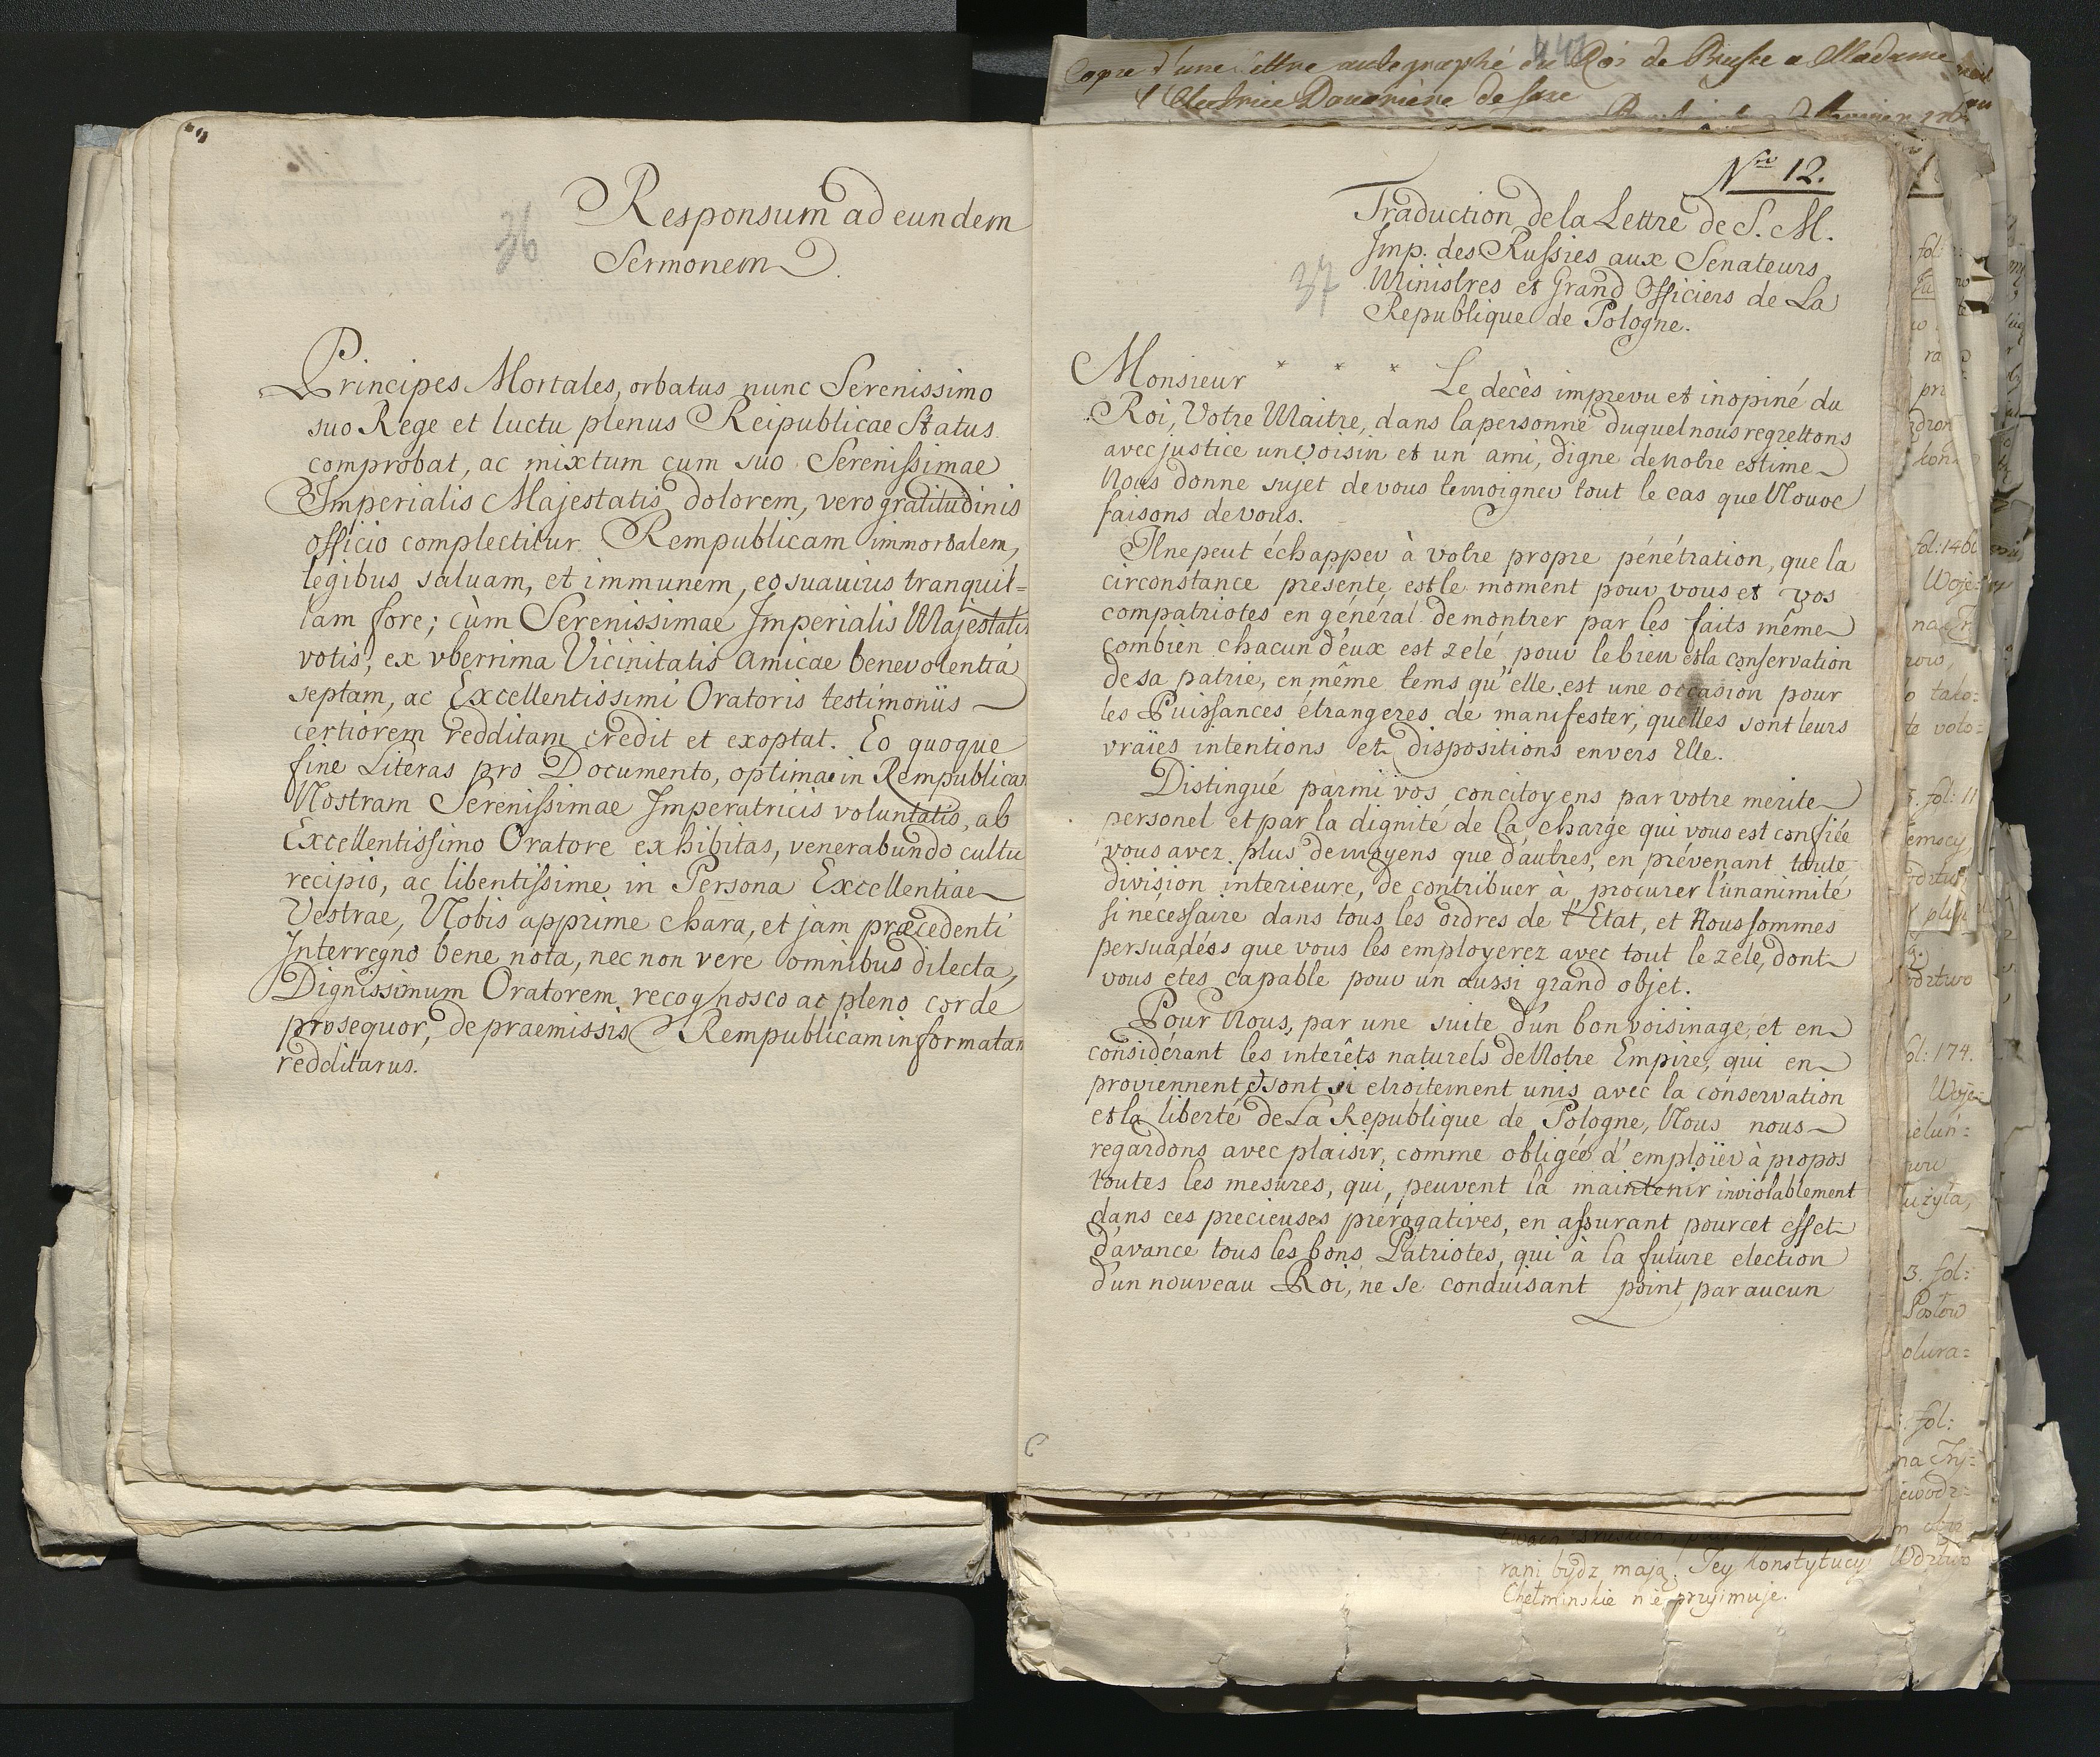 Responsum ad eundem
Sermonem
36
Principes Mortales, orbatus nunc Serenissimo
suo Rege et luctu plenus Reipublicae Status
comprobat, ac mixtum cum suo Serenissimae
Imperialis Majestatis dolorem, vero gratitudinis
officio complectitur. Rempublicam immortalem,
legibus saluam, et immunem, eo suavius tranquil=
lam fore; cùm Serenissimae Imperialis Majestatis
votis, ex vberrima Vicinitatis amicae benevolentiâ
septam, ac Excellentissimi Oratoris testimoniis
certiorem redditam credit et exoptat. Eo quoque
fine Literas pro Documento, optimae in Rempublicam
Nostram Serenissimae Imperatricis voluntatis, ab
Excellentissimo Oratore exhibitas, venerabundo cultu
recipio, ac libentissime in Persona Excellentiae
Vestrae, Nobis apprime chara, et jam præcedenti
Interregno bene nota, nec non vere omnibus dilecta,
Dignissimum Oratorem recognosco ac pleno corde
prosequor, de praemissis Rempublicam informatam
redditurus.
Copie d'une lettre autographé du Roi de Prusse a Madame
l'Electrice Douairiere de Saxe
Nro 12.
Traduction de la Lettre de S. M.
Imp. des Russies aux Senateurs
Ministres et Grand Officiers de La
Republique de Pologne.
37
Monsieur * * * Le decès imprevu et inopiné du
Roi, Votre Maitre, dans la personne duquel nous regrettons
avec justice un voisin et un ami, digne de notre estime
Nous donne sujet de vous temoigner tout le cas que Nous
faisons de vous.
Il ne peut échapper à votre propre pénétration, que la
circonstance presente est le moment pour vous et vos
compatriotes en général de montrer par les faits même
combien chacun d'eux est zelé pour le bien et la conservation
de sa patrie, en même tems qu'elle est une occasion pour
les Puissances étrangeres de manifester, quelles sont leurs
vraïes intentions et dispositions envers Elle.
Distingué parmi vos concitoyens par votre merite
personel et par la dignité de la charge qui vous est confiée
vous avez plus de moyens que d'autres, en prévenant toute
division interieure, de contribuer à procurer l'unanimité
si necessaire dans tous les ordres de l'Etat, et Nous sommes
persuadés que vous les employerez avec tout le zele, dont
vous etes capable pour un aussi grand objet.
Pour Nous, par une suite d'un bon voisinage, et en
considérant les interêts naturels de Notre Empire, qui en
proviennent et sont si etroitement unis avec la conservation
et la liberté de La Republique de Pologne, Nous nous
regardons avec plaisir, comme obligée d'emploïer à propos
toutes les mesures, qui, peuvent la maintenir inviolablement
dans ces precieuses prérogatives, en assurant pour cet effet
d'avance tous les bons Patriotes, qui à la future election
d'un nouveau Roi, ne se conduisant point par aucun
rani bydz mają. Tey konstytucyi Wdztwo
Chełminskie nie przyimuje.